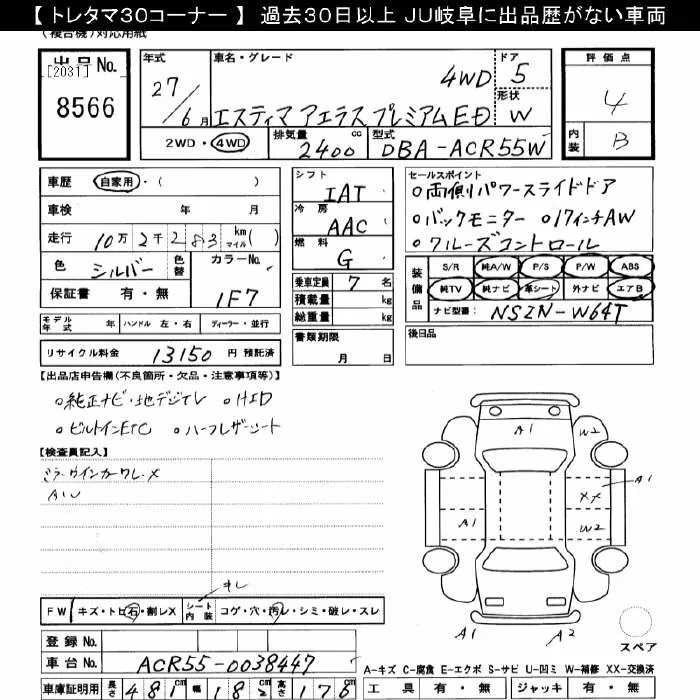 【 トレタマ30コーナー 】 過去30日以上 JU岐阜に出品歴がない車両
(複合機)対応用紙
出品No.
[2031]
8566
年式
27/6月
車名・グレード
4WD
エスティマ アエラス プレミアムED
ドア
5
形状
W
評価点
4
内装
B
2WD・4WD
排気量 cc
2400
型式
DBA-ACR55W
車歴 自家用・( )
車検 年 月
走行 10万2千283 km マイル( )
色 シルバー 色替
カラーNo.
1F7
保証書 有・無
シフト
IAT
冷房
AAC
燃料
G
乗車定員 7 名
積載量 kg
総重量 kg
書類期限
月 日
セールスポイント
○両側パワースライドドア
○バックモニター ○17インチAW
○クルーズコントロール
装備品
S/R 純A/W P/S P/W ABS
純TV 純ナビ 革シート 外ナビ エアB
ナビ型番: NSZN-W64T
後日品
モデル年式 年 ハンドル 左・右 ディーラー・並行
リサイクル料金 13150 円 預託済
【出品店申告欄(不良箇所・欠品・注意事項等)】
○純正ナビ・地デジTV ○HID
○ビルトインETC ○ハーフレザーシート
【検査員記入】
ミラーウインカーワレ-X
A1U
A1
W2
A1
XX
A1
W2
A1
A2
スペア
キレ
FW キズ・トビ石・割レX シート内装 コゲ・穴・汚レ・シミ・破レ・スレ
登録No.
車台No. ACR55-0038447
車庫証明用 長さ 481cm 幅 18 cm 高さ 176cm
A-キズ C-腐食 E-エクボ S-サビ U-凹ミ W-補修 XX-交換済
工具 有・無 ジャッキ 有・無